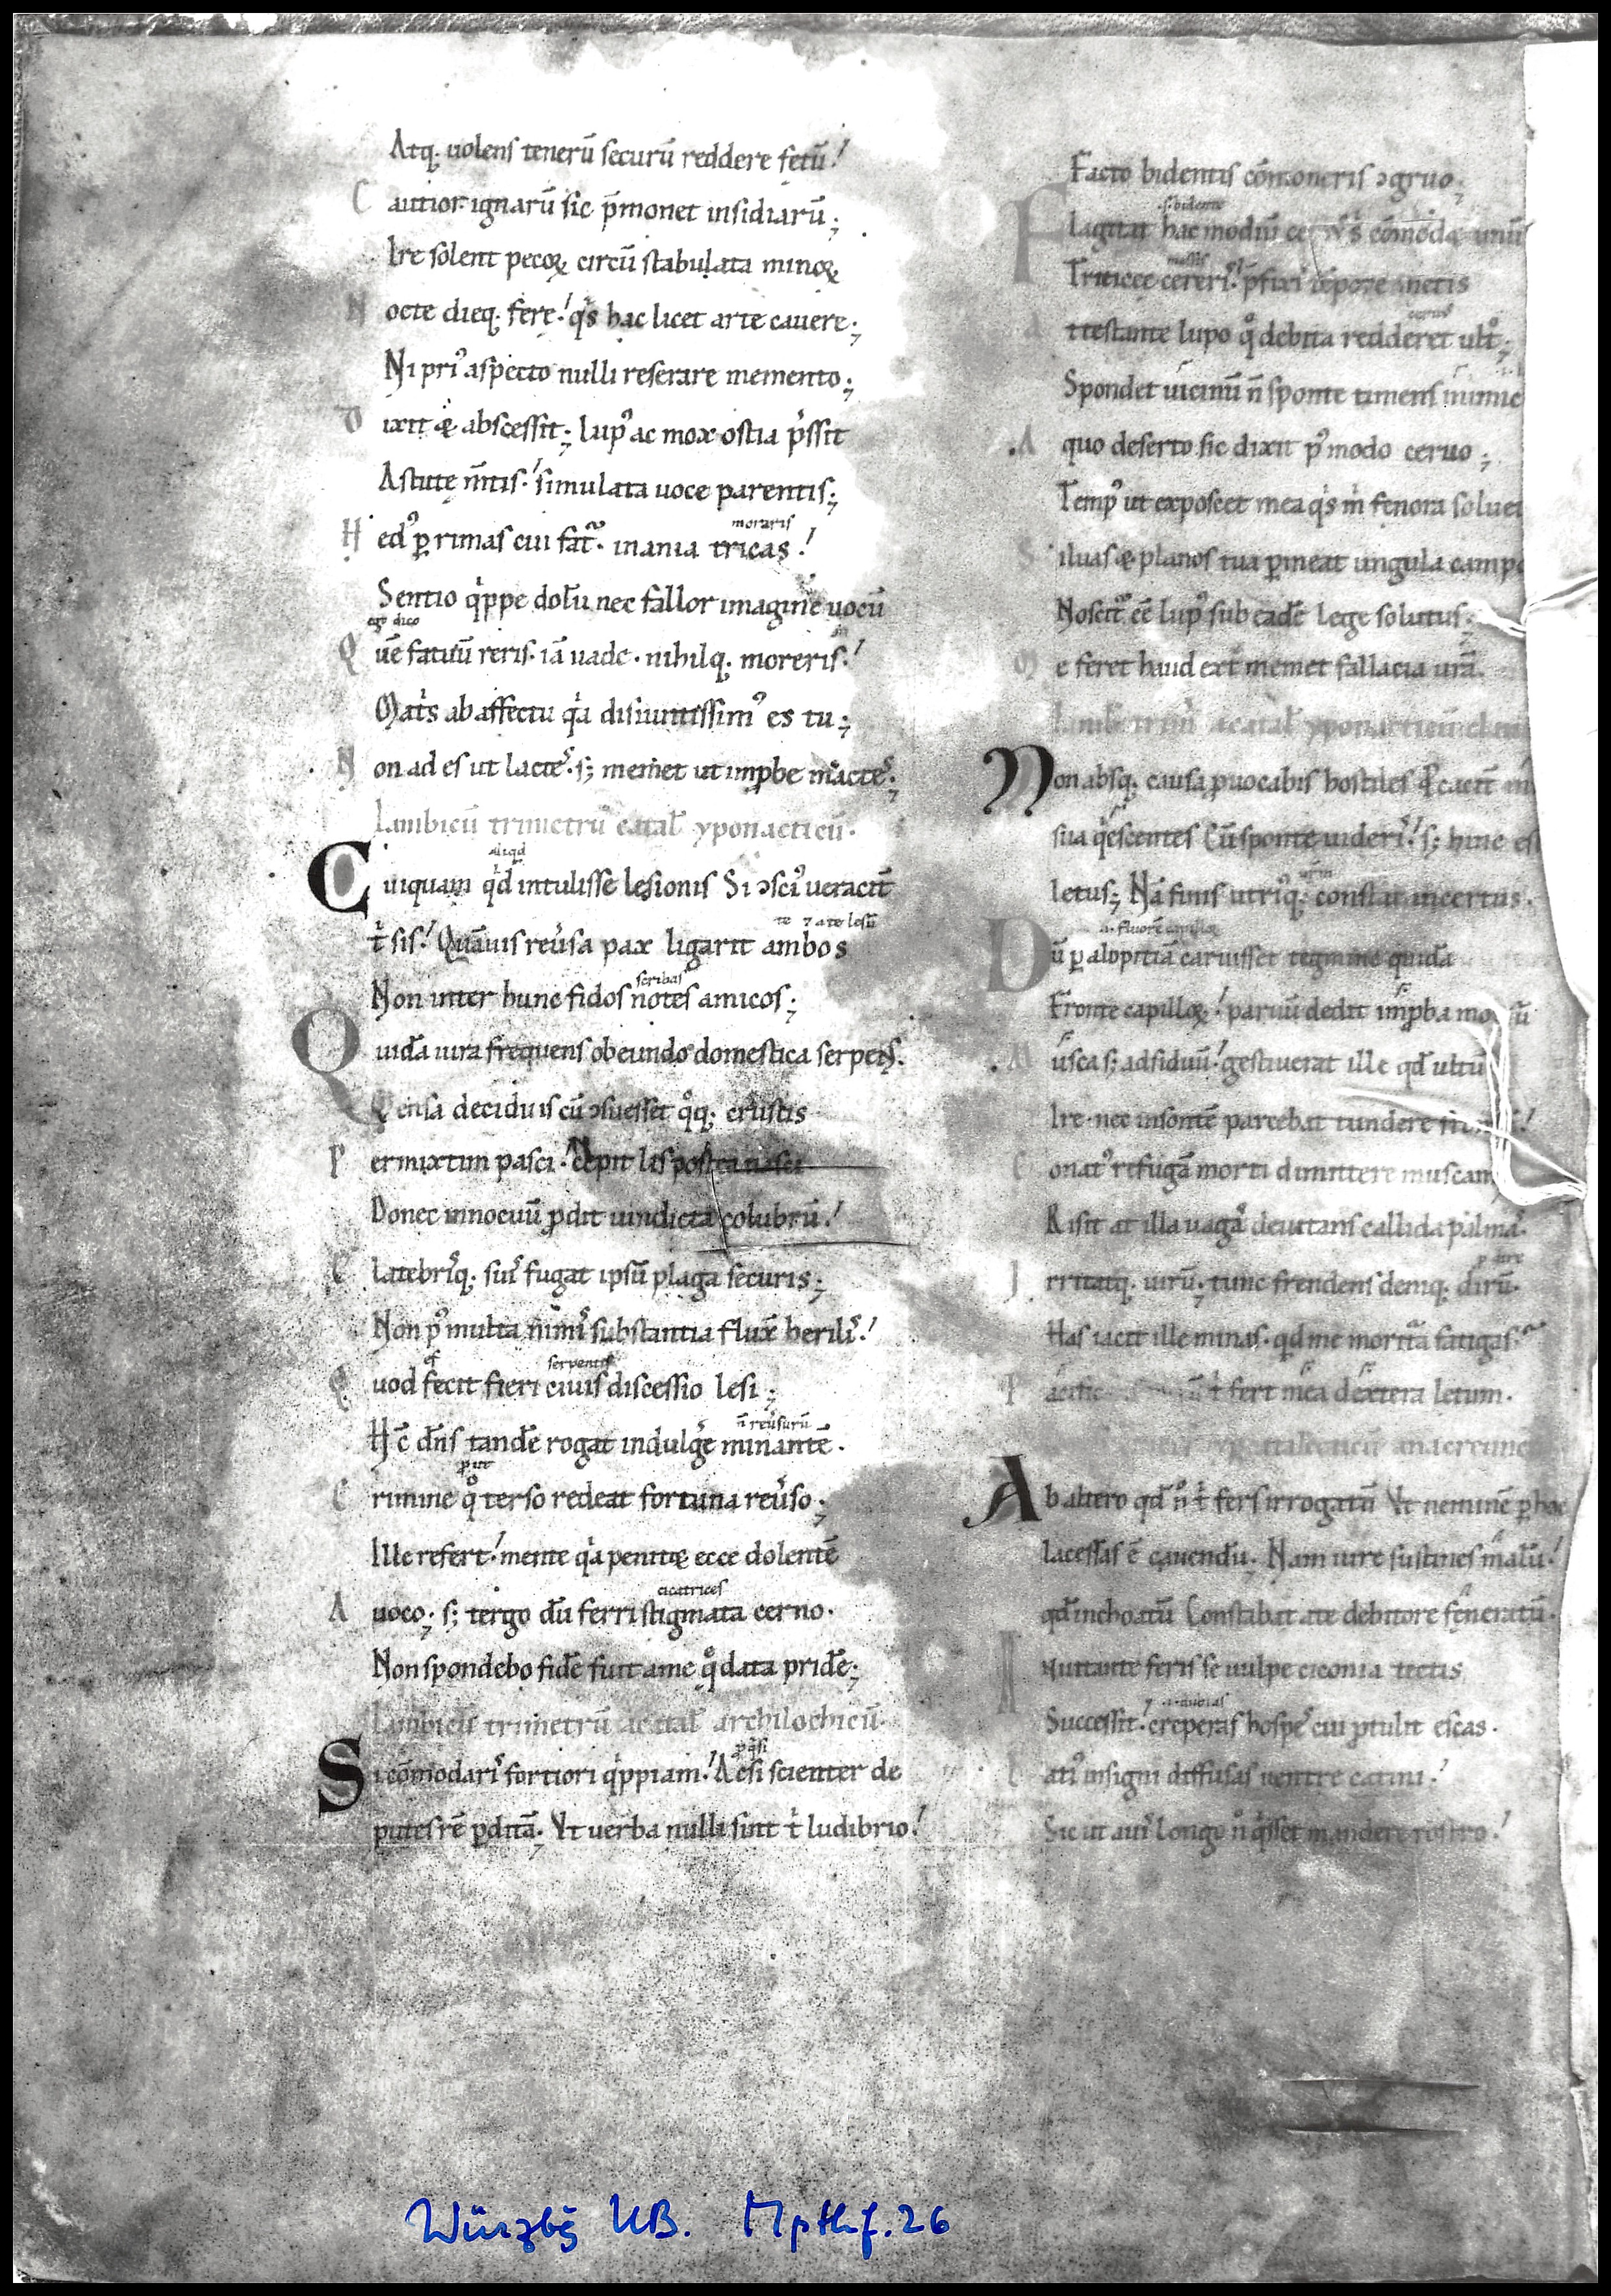 Atq; uolens tenerū securū reddere fetū!
C autior ignarū sic p̄monet insidiarū;
Ire solent pecoꝝ circū stabulata minoꝝ
N octe dieq; ferę! q's hac licet arte cauere;
Ni pri' aspecto nulli reserare memento;
D ixit & abscessit; lup' ac mox ostia p'ssit
Astute m̄tis! simulata uoce parentis;
moraris
H ed' ꝑ rimas cui fat'. inania tricas!
Sentio q'ppe dolū nec fallor imagine uocū
ego dico
Q uē fatuū reris. iā uade. nihilq; moreris!
Mat's ab affectu q'a disiunctissim' es tu;
N on ad es ut lactes. s; memet ut improbe mactes;
Iambicū trimetrū catal yponacticū.
aliqd
C uiquam q'd intulisse lesionis Si ɔsci' ueracit
t' sis! Quāuis reu'sa pax ligarit ambos
te 7 a te lesū
scribas
Non inter hunc fidos notes amicos;
Q uidā iura frequens obeundo domestica serpens.
ensa deciduis cū ɔsuesset q'q; crustis
P ermixtim pasci. Cepit lis postea nasci
Donec innocuū ꝓdit uindicta colubrū!
E Latebrisq; suis fugat ipsū plaga securis;
Non p' multa nimis substantia fluxit herilis!
ef serpentis
Q uod fecit fieri ciuis discessio lesi;
n̄ reu'surū
H̄c dn̄s tandē rogat indulg'e minantē.
ꝓut
C rimine q° terso redeat fortuna reu'so;
Ille refert! mente q'a penitꝫ ecce dolentē
cicatrices
A uoco; s; tergo dū ferri stigmata cerno.
Non spondebo fidē fuit a me q° data pridē;
Iambicū trimetrū acatal archilochicū.
ꝓ q'si
S i cōmodaris fortiori q'ppiam! Ac si scienter de
putes rē ꝑditā; Vt uerba nulli sint t' ludibrio!
Facto bidentis cōmoneris ɔgruo;
.s. bidente
F lagitat hac modiū ceru's cōmodaꝫ unū
Triticeę cereris! p̄fixi tēpore metis
A ttestante lupo q° debita redderet ult';
Spondet uicinū n̄ sponte timens inimic
A quo deserto sic dixit p' modo ceruo;
Temp' ut exposcet mea q's m' fenora soluet
S iluas & planos tua ꝑmeat ungula campos
Noscit' eē lup' sub eadē lege solutus;
M e feret haud ext' memet fallacia urā.
N on absq; causa ꝓuocabis hostiles
sua q'escentes Cū sponte uideris! s; hinc es
letus; Nā finis utriq; constat incertus.
D ū ꝑ alopitiā caruisset tegmine quidā
Fronte capilloꝝ! paruū dedit improba
M usca s; adsiduū! gestiuerat ille qd ultū
Ire. nec insontē parcebat tundere
C onat' refugā morti dimittere muscam
Risit at illa uagas deuitans callida palmas.
I rritatq; uirū; tunc frendens deniq; dirū.
Has iacit ille minas. qd me moritā fatigas
P t' fert mea dextera letum.
A b altero qd n̄ t' fers irrogatū Vt neminē ꝑ hoc
lacessas ē cauendū. Nam iure sustines malū!
qd inchoatū Constabat a te debitore feneratū.
N uttante feris se uulpe ciconia tectis
Successit. creperas hospes cui ꝓtulit escas.
L ati' insigni diffusas uentre catini!
Sic ut auis longo n° q'sset mandere rostro!
Würzbg UB. Mpthf. 26